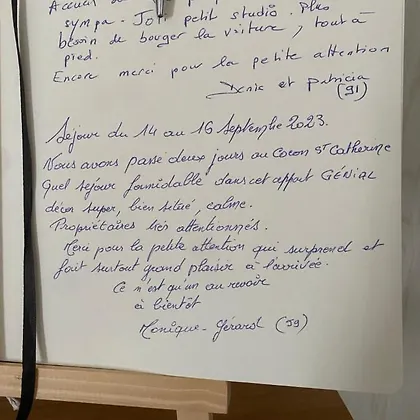 Accueil
sympa - Joli petit studio. Plus
besoin de bouger la voiture, tout à
pied.
Encore merci pour la petite attention
Denis et Patricia
(91)
Séjour du 14 au 16 Septembre 2023.
Nous avons passé deux jours au Cocon St Catherine
Quel séjour formidable dans cet appart GÉNIAL
décor super, bien situé, calme.
Propriétaires très attentionnés.
Merci pour la petite attention qui surprend et
fait surtout grand plaisir à l'arrivée.
Ce n'est qu'un au revoir
à bientôt
Monique - Gérard (59)